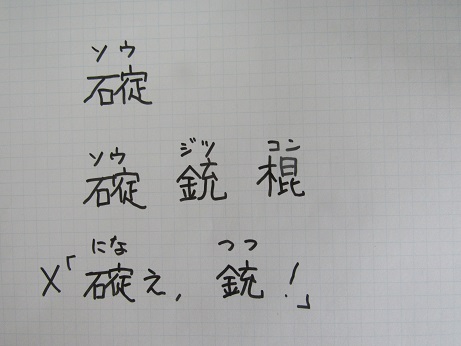 ソウ
碇
ソウ ジツ コン
碇 銃 棍
にな つつ
×「碇え, 銃!」